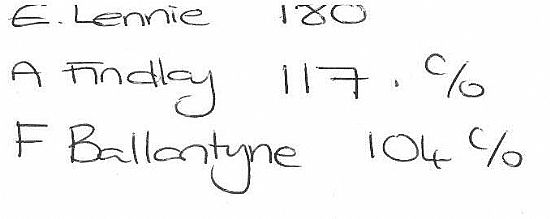 E. Lennie 180
A Findlay 117 . c/o
F Ballantyne 104 c/o